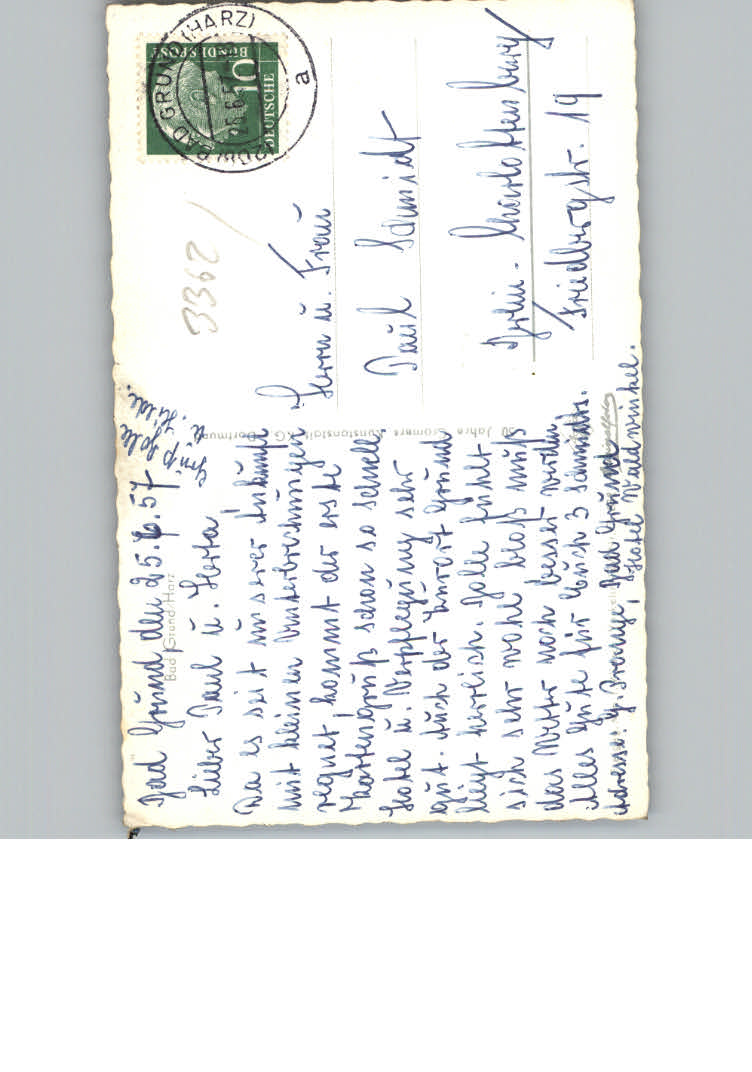 Bad Grund den 25.6.57
Bad Grund/Harz
Lieber Paul u. Herta
Da es seit unserer Ankunft
mit kleinen Unterbrechungen
regnet, kommt der erste
Kartengruß schon so schnell.
Hotel u. Verpflegung sehr
gut. Auch der Kurort Grund
liegt herrlich.
sich sehr wohl bloß muß
das Wetter noch besser werden.
Alles Gute für Euch 3 Schmidts.
Adresse: Bad Grund
Hotel Waldwinkel.
Gruß
50 Jahre Cramers Kunstanstalt KG., Dortmund
DEUTSCHE
BUNDESPOST
10
BAD GRUND (HARZ)
25.6.57
a
3362
Herrn u. Frau
Paul Schmidt
Berlin-Charlottenburg
Friedbergstr. 19